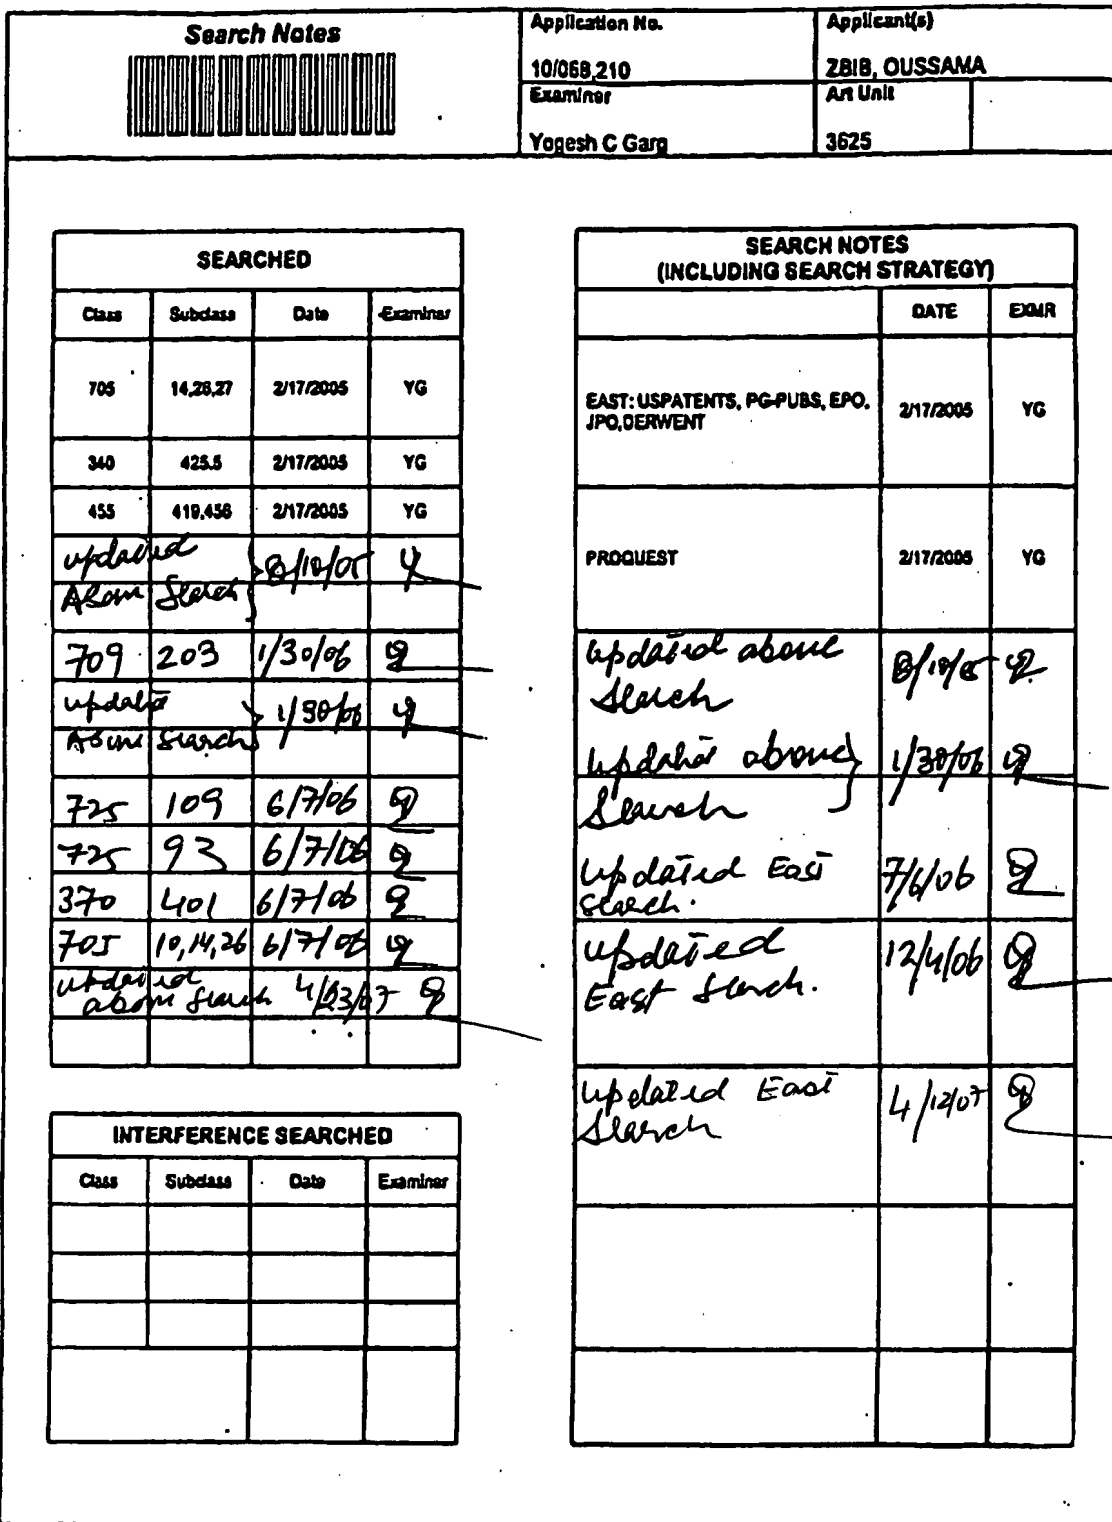 Search Notes
Application No.
Applicant(s)
10/068,210
ZBIB, OUSSAMA
Examiner
Art Unit
Yogesh C Garg
3625
SEARCHED
Class Subclass Date Examiner
705 14,26,27 2/17/2005 YG
340 425.5 2/17/2005 YG
455 419,456 2/17/2005 YG
updated
Above Search 8/18/05
709 203 1/30/06
updated
Above Search 1/30/06
725 109 6/7/06
725 93 6/7/06
370 401 6/7/06
705 10,14,26 6/7/06
updated
above search 4/23/07
INTERFERENCE SEARCHED
Class Subclass Date Examiner
SEARCH NOTES
(INCLUDING SEARCH STRATEGY)
DATE EXMR
EAST: USPATENTS, PG-PUBS, EPO,
JPO,DERWENT 2/17/2005 YG
PROQUEST 2/17/2005 YG
updated above
Search 8/18/05
updated above
Search 1/30/06
updated East
search. 7/6/06
updated
East search. 12/4/06
updated East
Search 4/12/07